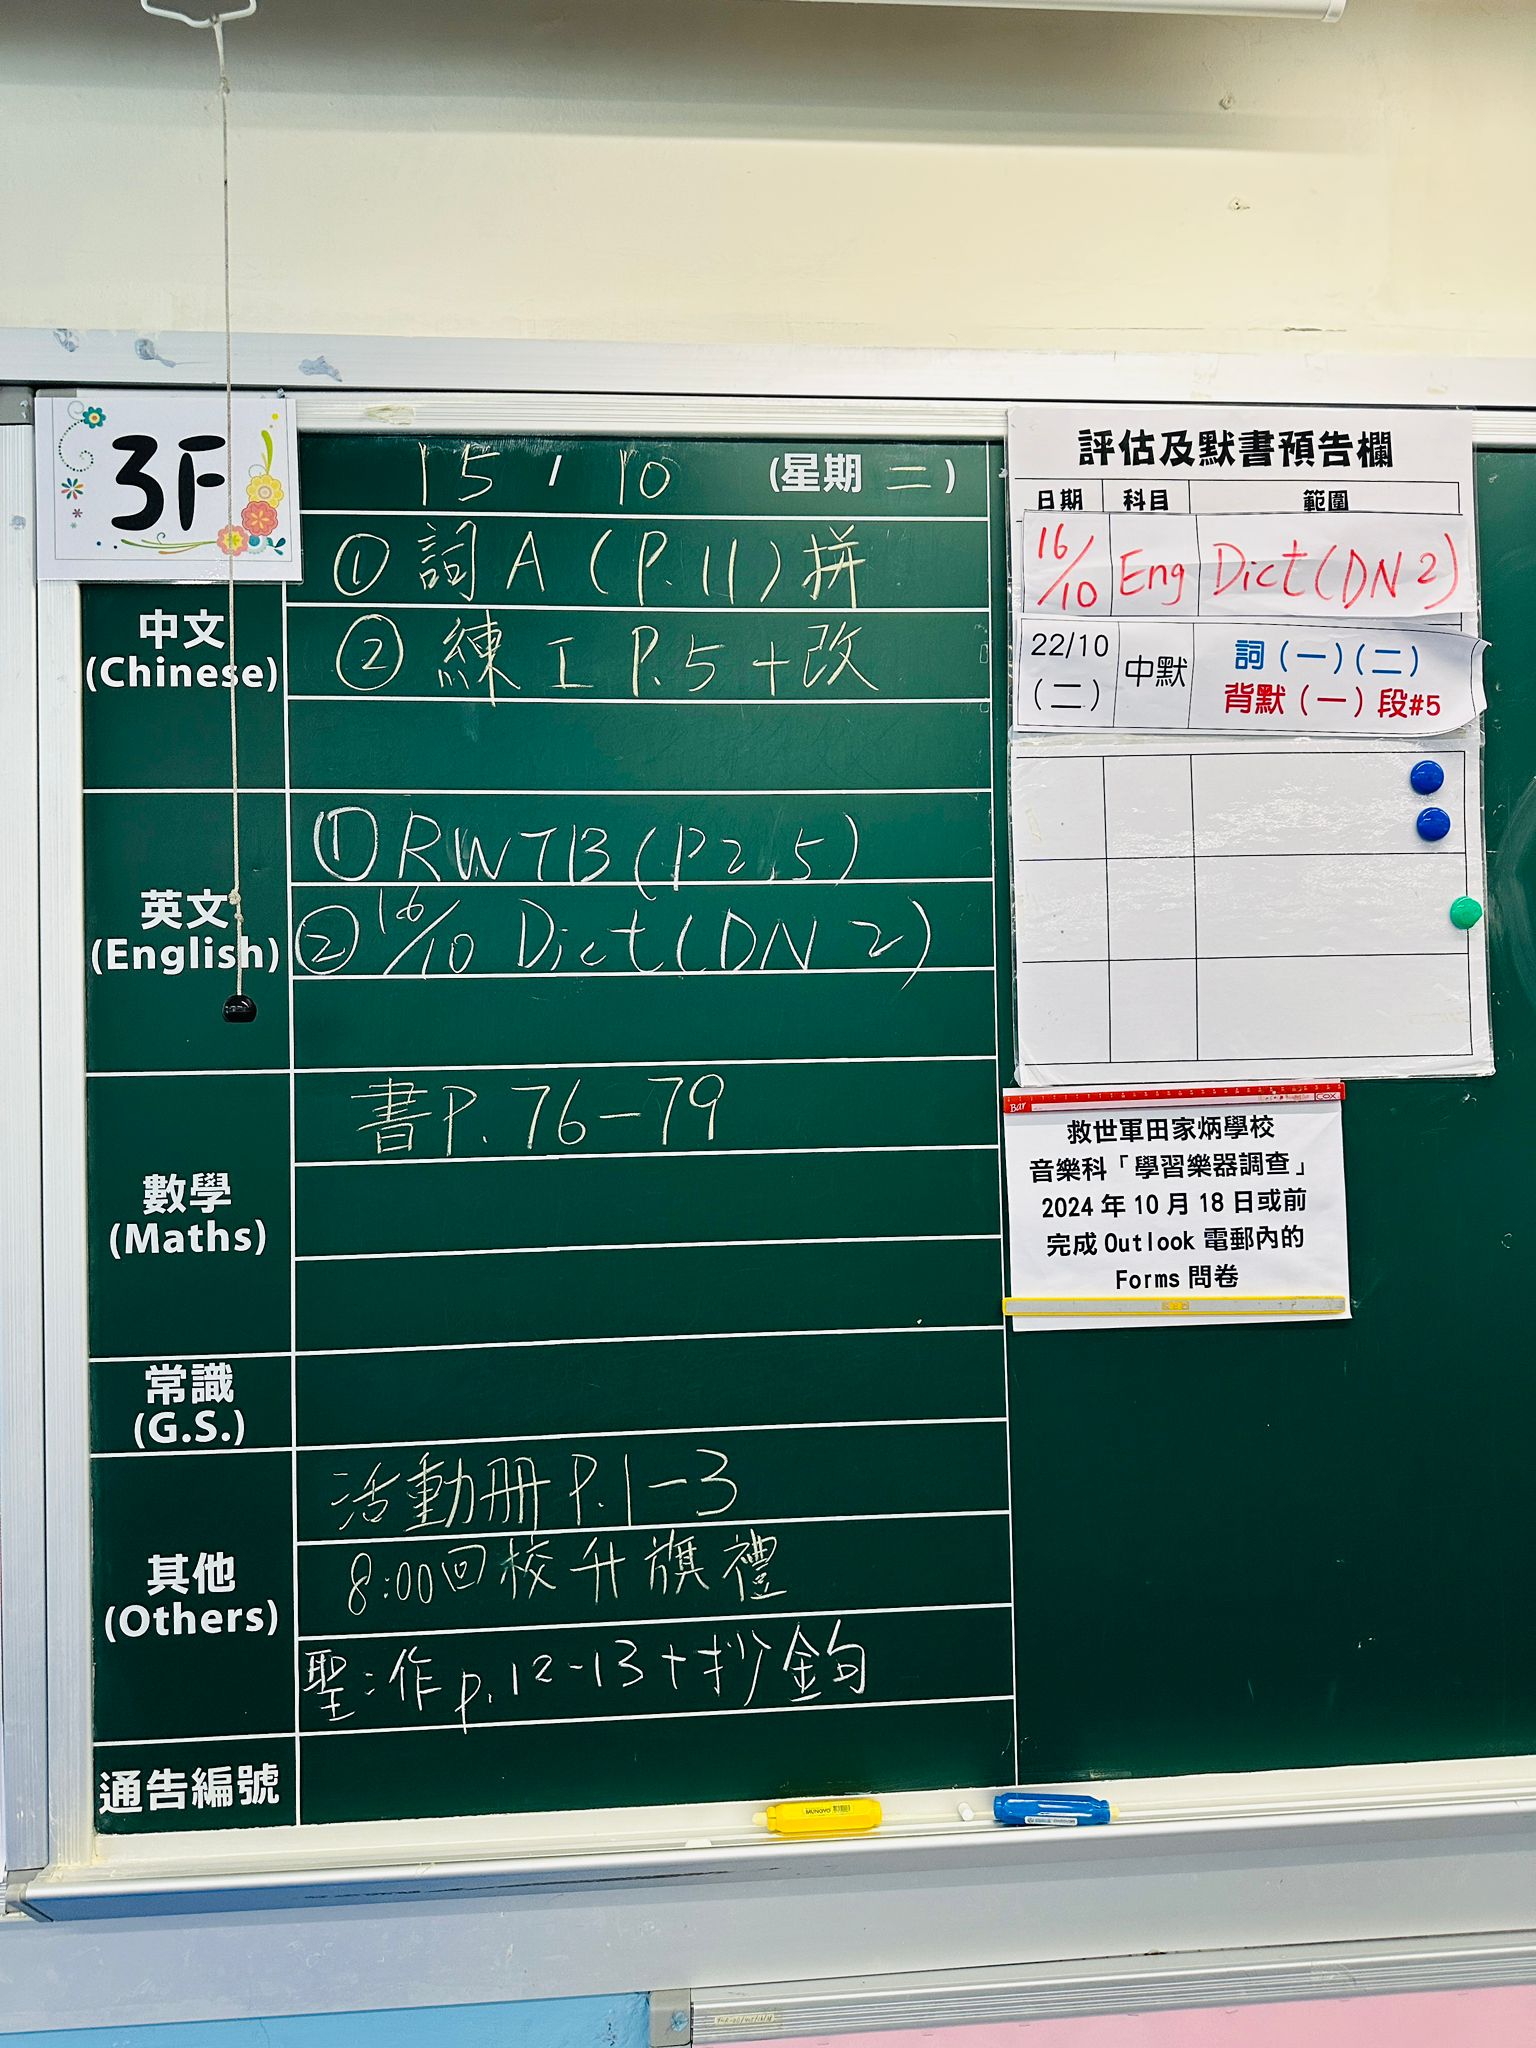 3F
15 / 10 (星期 二)
中文
(Chinese)
① 詞 A (P.11) 拼
② 練工 P.5 + 改
英文
(English)
① RWTB (P2,5)
② 16/10 Dict (DN 2)
數學
(Maths)
書P. 76-79
常識
(G.S.)
其他
(Others)
活動冊 P.1-3
8:00回校升旗禮
聖:作 p.12-13+抄金句
通告編號
評估及默書預告欄
日期 科目 範圍
16/10 Eng Dict (DN 2)
22/10 (二) 中默 詞 (一) (二)
背默 (一) 段#5
Bar COX
救世軍田家炳學校
音樂科「學習樂器調查」
2024 年 10 月 18 日或前
完成 Outlook 電郵內的
Forms 問卷
MUNGYO